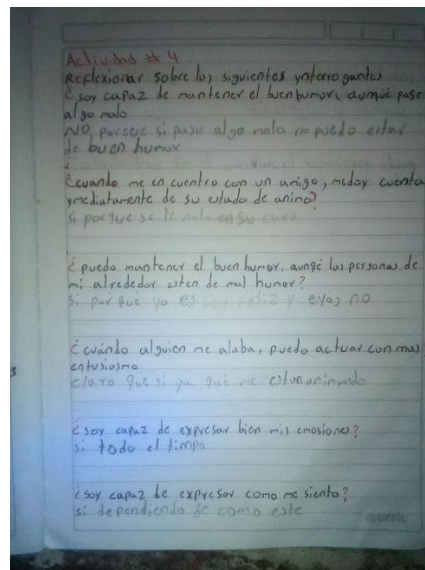 Actividad # 4
Reflexionar sobre los siguientes ynterrogantes
¿soy capaz de mantener el buen humor, aunqué pase
algo malo
NO, porque si pasa algo malo no puedo estar
de buen humor
¿
¿cuando me en cuentro con un amigo, medoy cuenta
ymediatamente de su estado de animo?
si porque se le nota en su cara
¿puedo mantener el buen humor, aunqé las personas de
mi alrededor esten de mal humor?
si por qué yo es feliz y eyos no
¿cuándo alguien me alaba, puedo actuar con mas
entusiasmo
claro que si ya qué me estan animando
¿soy capaz de expresar bien mis emosiones?
si todo el timpo
¿soy capaz de expresar como me siento?
si dependiendo de como este